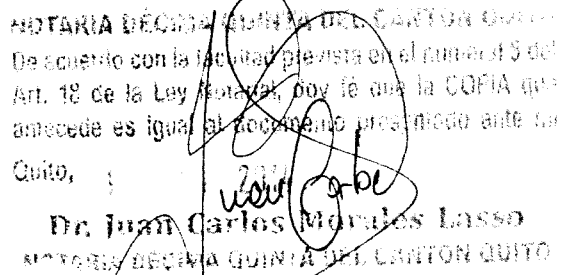 NOTARIA DÉCIMA QUINTA DEL CANTON QUITO
De acuerdo con la facultad prevista en el numeral 5 del
Art. 18 de la Ley Notarial, doy fé que la COPIA que
antecede es igual al documento presentado ante mi
Quito,
Dr. Juan Carlos Morales Lasso
NOTARIA DÉCIMA QUINTA DEL CANTON QUITO